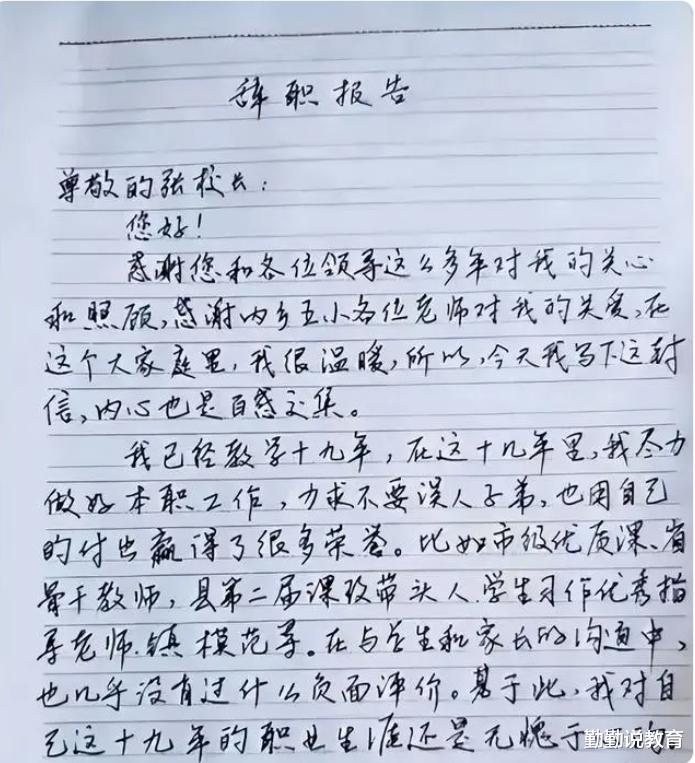 辞职报告
尊敬的张校长：
您好！
感谢您和各位领导这么多年对我的关心
和照顾，感谢内乡五小各位老师对我的关爱，在
这个大家庭里，我很温暖，所以，今天我写下这封
信，内心也是百感交集。
我已经教学十九年，在这十几年里，我尽力
做好本职工作，力求不要误人子弟，也用自己
的付出赢得了很多荣誉。比如市级优质课、省
骨干教师，县第二届课改带头人、学生习作优秀指
导老师、镇模范等。在与学生和家长的沟通中，
也几乎没有过什么负面评价。基于此，我对自
己这十九年的职业生涯还是无愧于
勤勤说教育